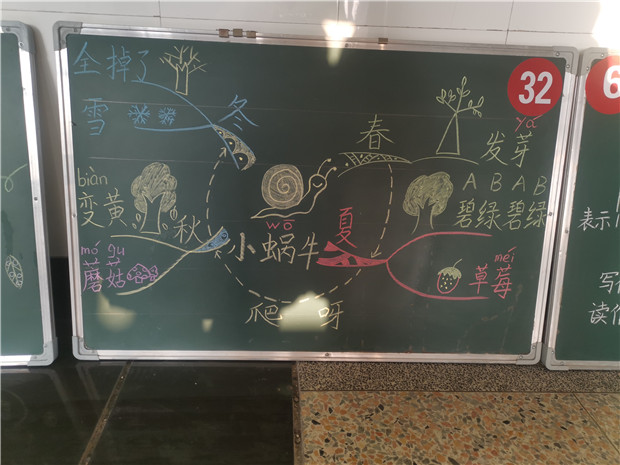 全掉了
雪
冬
春
yá
发芽
32
6
biàn
变黄
秋
A B A B
碧绿碧绿
mó gu
蘑菇
wō
小蜗牛
夏
méi
草莓
爬 呀
表示
写
读